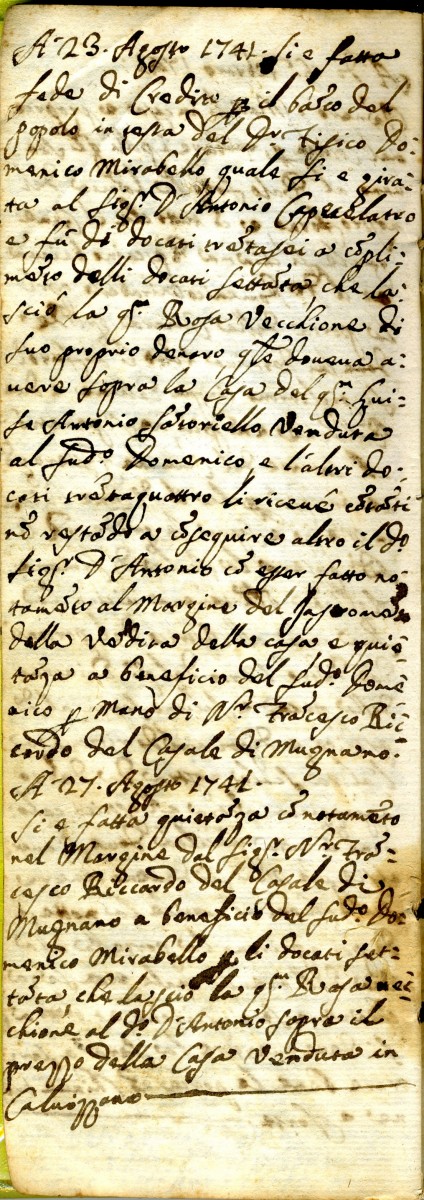 A 23. Agosto 1741. si e fatta
fede di Credito p il baco del
popolo in testa del Dr Fisico Do:
menico Mirabello quale si e gira:
ta al sigr. D Antonio Capecelatro
e fù di docati tretasei a copli:
meto delli docati settata, che la:
sciò la qm Rosa Vecchione di
suo proprio denaro qle doueua a:
uere sopra la Casa del qm Gui:
se Antonio Satoriello Venduta
al sudo. Domenico, e l'altri do:
cati tretaquattro li riceuè cotati
no restado a cosequire altro il do
sigr. D Antonio co esser fatto no:
tameto al Margine del Jastrometo
della Vedita della casa, e quie:
taza a beneficio del sudo. Dome:
nico p Mano di Nr. Fracesco Ric:
cardo del Casale di Mugnano.
A 27. Agosto 1741.
si e fatta quietaza co notameto
nel Margine dal sigr. Nr Fra:
cesco Riccardo del Casale di
Mugnano a beneficio del sudo. Do:
menico Mirabello p li docati set:
tata, che lasciò la qm Rosa uec:
chione al do. D Antonio sopra il
prezzo della Casa Venduta in
Caluizzano